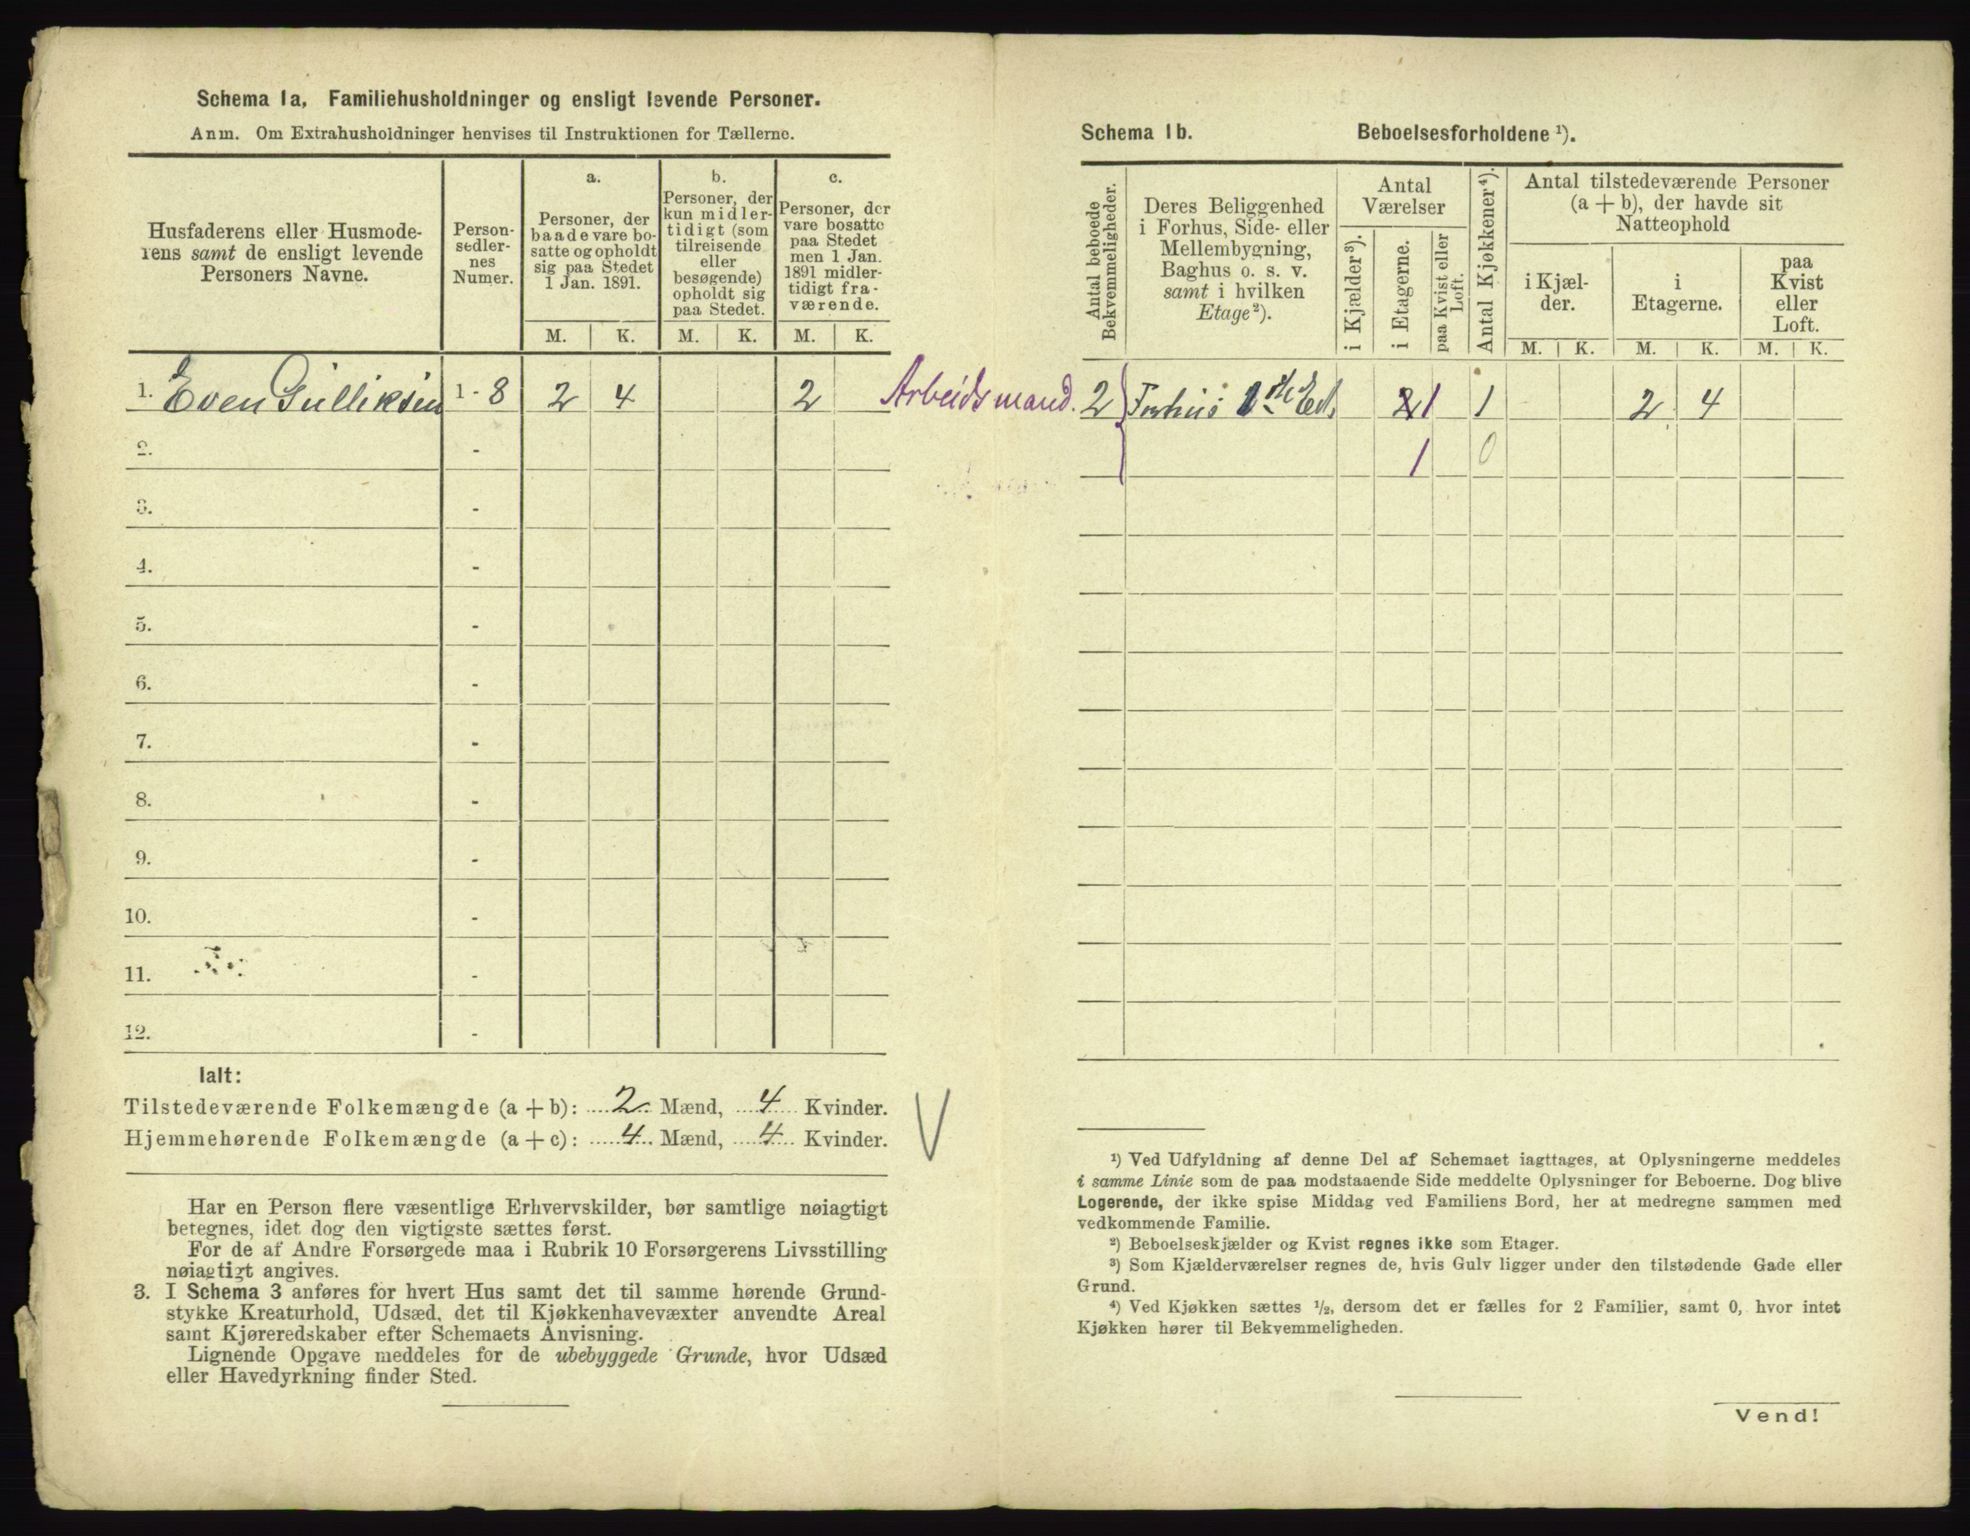 Schema 1a, Familiehusholdninger og ensligt levende Personer.
Anm. Om Extrahusholdninger henvises til Instruktionen for Tællerne.
Husfaderens eller Husmode-
rens samt de ensligt levende
Personers Navne.
Person-
sedler-
nes
Numer.
a.
Personer, der
baade vare bo-
satte og opholdt
sig paa Stedet
1 Jan. 1891.
b.
Personer, der
kun midler-
tidigt (som
tilreisende
eller
besøgende)
opholdt sig
paa Stedet.
c.
Personer, der
vare bosatte
paa Stedet
men 1 Jan.
1891 midler-
tidigt fra-
værende.
M. K. M. K. M. K.
1. Even Gulliksen 1 - 8 2 4 2 Arbeidsmand.
2. -
3. -
4. -
5. -
6. -
7. -
8. -
9. -
10. -
11. -
12. -
Ialt:
Tilstedeværende Folkemængde (a + b): 2 Mænd, 4 Kvinder.
Hjemmehørende Folkemængde (a + c): 4 Mænd, 4 Kvinder.
Har en Person flere væsentlige Erhvervskilder, bør samtlige nøiagtigt
betegnes, idet dog den vigtigste sættes først.
For de af Andre Forsørgede maa i Rubrik 10 Forsørgerens Livsstilling
nøiagtigt angives.
3. I Schema 3 anføres for hvert Hus samt det til samme hørende Grund-
stykke Kreaturhold, Udsæd, det til Kjøkkenhavevæxter anvendte Areal
samt Kjøreredskaber efter Schemaets Anvisning.
Lignende Opgave meddeles for de ubebyggede Grunde, hvor Udsæd
eller Havedyrkning finder Sted.
Schema 1b. Beboelsesforholdene ¹).
Antal beboede
Bekvemmeligheder.
Deres Beliggenhed
i Forhus, Side- eller
Mellembygning,
Baghus o. s. v.
samt i hvilken
Etage²).
Antal
Værelser
i Kjælder³).
i Etagerne.
paa Kvist eller
Loft.
Antal Kjøkkener⁴).
Antal tilstedeværende Personer
(a + b), der havde sit
Natteophold
i Kjæl-
der.
i
Etagerne.
paa
Kvist
eller
Loft.
M. K. M. K. M. K.
2 Forhus 1ste Et. 2 1 1 2 4
1 0
¹) Ved Udfyldning af denne Del af Schemaet iagttages, at Oplysningerne meddeles
i samme Linie som de paa modstaaende Side meddelte Oplysninger for Beboerne. Dog blive
Logerende, der ikke spise Middag ved Familiens Bord, her at medregne sammen med
vedkommende Familie.
²) Beboelseskjælder og Kvist regnes ikke som Etager.
³) Som Kjælderværelser regnes de, hvis Gulv ligger under den tilstødende Gade eller
Grund.
⁴) Ved Kjøkken sættes ½, dersom det er fælles for 2 Familier, samt 0, hvor intet
Kjøkken hører til Bekvemmeligheden.
Vend!